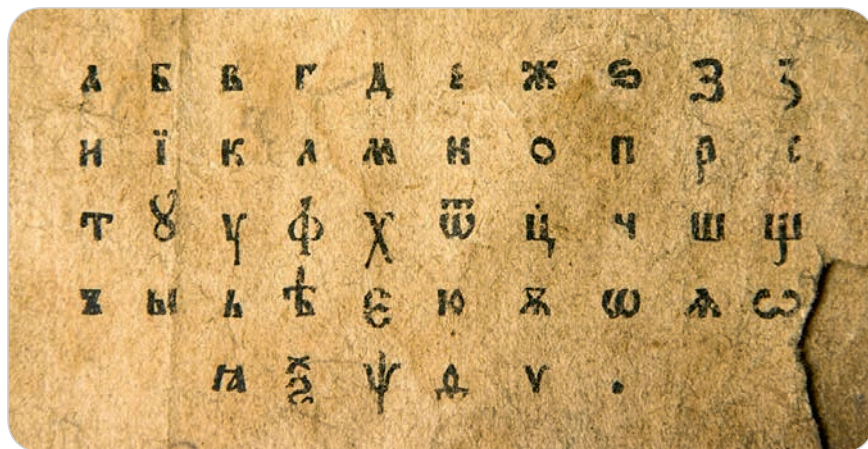 а б в г д е ж ѕ З ʒ
и ї к л м н о п р с
т ꙋ у ф х ѿ ц ч ш щ
ъ ы ь ѣ є ю ѫ ѡ ѧ ѡ
ꙗ ѯ ѱ д ѵ .